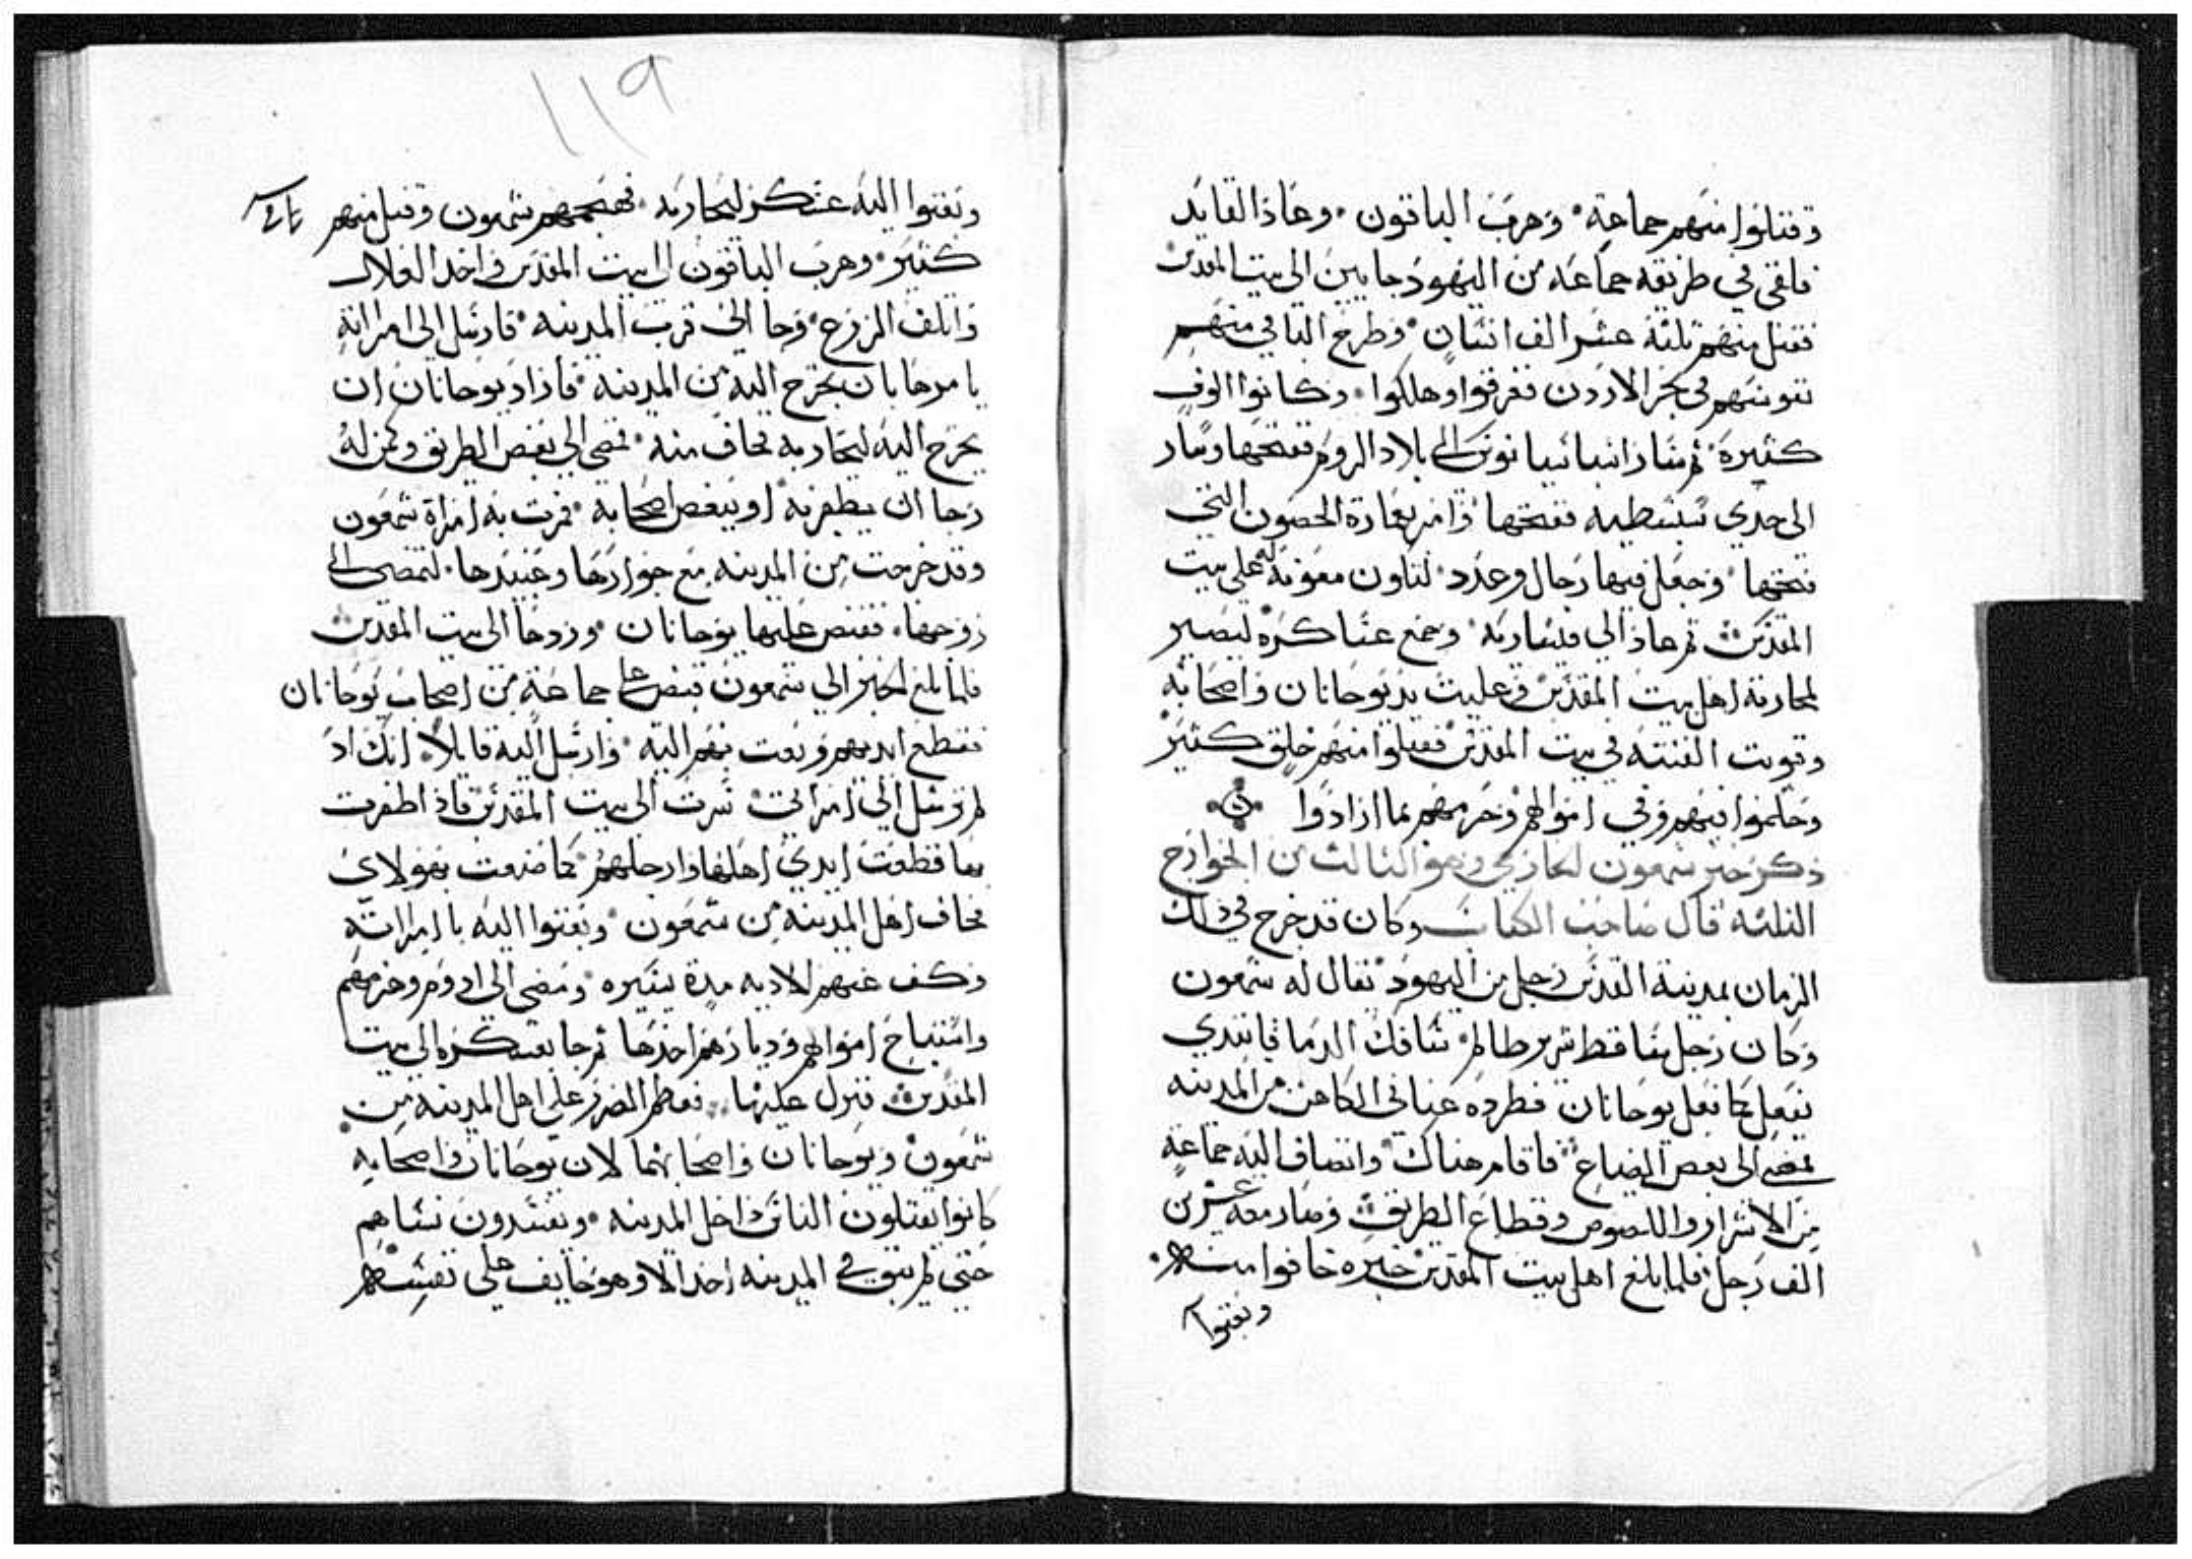 وقتلوا منهم جماعة وهرب الباقون وعاد القايد
فلقي في طريقه جماعه من اليهود جايين الى بيت المقدس
فقتل منهم ثلثة عشر الف انسان وطرح الباقي منهم
نفوسهم في بحر الاردن فغرقوا وهلكوا وكانوا الوف
كثيرة ثم سار اسباسيانوس الى بلاد الروم ففتحها وسار
الى حدي سبسطيه ففتحها وامر بعمارة الحصون التي
فتحها وجعل فيها رجال وعدد لتكون معونة له على بيت
المقدس ثم عاد الى قيساريه وجمع عساكره ليصير
لمحاربة اهل بيت المقدس وعليت يد يوحانان واصحابه
وقويت الفتنه في بيت المقدس فقتلوا منهم خلق كثير
وحكموا فيهم وفي اموالهم وحرمهم بما ارادوا
ذكر خبر شمعون الخارجي وهو الثالث من الخوارج
الثلثه قال صاحب الكتاب وكان قد خرج في ذلك
الزمان بمدينة القدس رجل من اليهود يقال له شمعون
وكان رجل ساقط شرير ظالم سافك الدما فابتدي
يفعل كما فعل يوحانان فطرده عناني الكاهن من المدينه
فمضى الى بعض الضياع فاقام هناك وانضاف اليه جماعة
من الاشرار واللصوص وقطاع الطريق وصار معه عشرين
الف رجل فلما بلغ اهل بيت المقدس خبره خافوا منه
وبعثوا
١١٩
وبعثوا اليه عسكر ليحاربه فهجمهم شمعون وقتل منهم
كثير وهرب الباقون الى بيت المقدس واخذ الغلات
واتلف الزرع وجا الى قرب المدينه فارسل الى امراته
يامرها بان تخرج اليه من المدينه فاراد يوحانان ان
يخرج اليه ليحاربه فخاف منه فمضى الى بعض الطريق وكمن له
رجا ان يظفر به او ببعض اصحابه فمرت به امراة شمعون
وقد خرجت من المدينه مع جوارها وعبيدها لتمضى الى
زوجها فقبض عليها يوحانان وردها الى بيت المقدس
فلما بلغ الخبر الى شمعون قبض على جماعة من اصحاب يوحانان
فقطع ايديهم وبعث بهم اليه وارسل اليه قايلا انك اذ
لم ترسل الي امراتي سرت الى بيت المقدس فاذا ظفرت
بها قطعت ايدي اهلها وارجلهم كما صنعت بهولاي
فخاف اهل المدينه من شمعون وبعثوا اليه بامراته
وكف عنهم الاديه مدة يسيره ومضى الى ادوم وحرمهم
واستباح اموالهم وديارهم اخذها ثم جا بعسكره الى بيت
المقدس فنزل عليها فعظم الضرر على اهل المدينه من
شمعون ويوحانان واصحابهما لان يوحانان واصحابه
كانوا يقتلون الناس داخل المدينه ويفسدون نساهم
حتى لم يبق في المدينه احد الا وهو خايف على نفسه